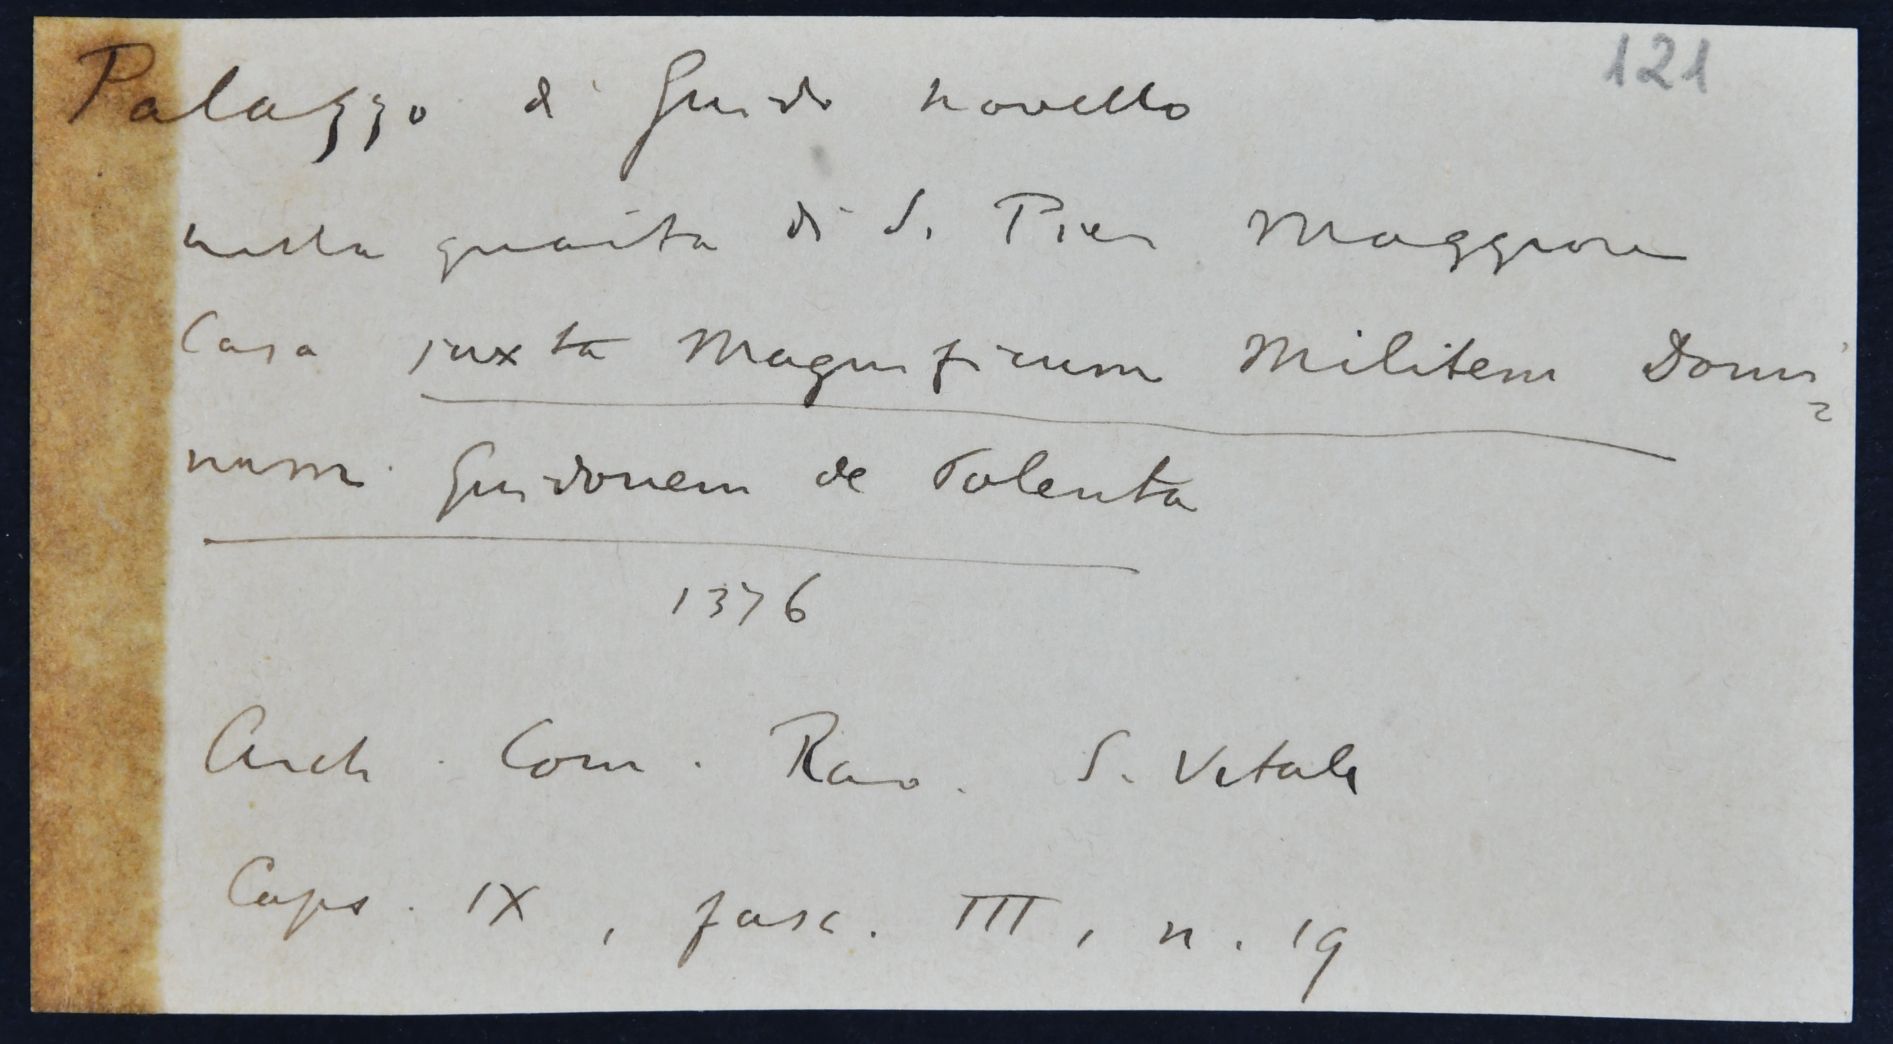 121
Palazzo di Guido novello
nella guaita di S. Pier Maggiore
Casa juxta Magnificum Militem Domi=
num Guidonem de Polenta
1376
Arch. Com. Rav. S. Vitale
Caps. IX, fasc. III, n. 19